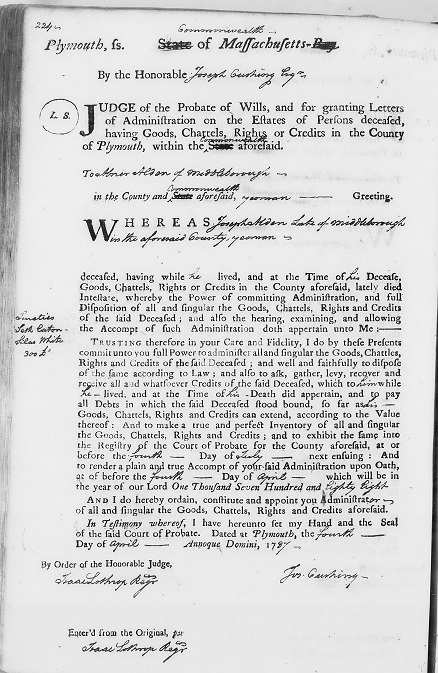 224
Commonwealth
Plymouth, ss. State of Massachusetts-Bay.
By the Honorable Joseph Cushing Esqr
L. S.
JUDGE of the Probate of Wills, and for granting Letters
of Administration on the Estates of Persons deceased,
having Goods, Chattels, Rights or Credits in the County
Commonwealth
of Plymouth, within the State aforesaid.
To Abner Alden of Middleborough
Commonwealth
in the County and State aforesaid, yeoman Greeting.
WHEREAS Joseph Alden Late of Middleborough
in the aforesaid County, yeoman
deceased, having while he lived, and at the Time of his Decease,
Goods, Chattels, Rights or Credits in the County aforesaid, lately died
Intestate, whereby the Power of committing Administration, and full
Disposition of all and singular the Goods, Chattels, Rights and Credits
of the said Deceased; and also the hearing, examining, and allowing
the Accompt of such Administration doth appertain unto Me;
Sureties
Seth Eaton
Silas White
300£
TRUSTING therefore in your Care and Fidelity, I do by these Presents
commit unto you full Power to administer all and singular the Goods, Chattles,
Rights and Credits of the said Deceased; and well and faithfully to dispose
of the same according to Law; and also to ask, gather, levy, recover and
receive all and whatsoever Credits of the said Deceased, which to him while
he lived, and at the Time of his Death did appertain, and to pay
all Debts in which the said Deceased stood bound, so far as his
Goods, Chattels, Rights and Credits can extend, according to the Value
thereof: And to make a true and perfect Inventory of all and singular
the Goods, Chattels, Rights and Credits; and to exhibit the same into
the Registry of the Court of Probate for the County aforesaid, at or
before the fourth Day of July next ensuing: And
to render a plain and true Accompt of your said Administration upon Oath,
at or before the fourth Day of April which will be in
the year of our Lord One Thousand Seven Hundred and Eighty Eight
AND I do hereby ordain, constitute and appoint you Administrator
of all and singular the Goods, Chattels, Rights and Credits aforesaid.
In Testimony whereof, I have hereunto set my Hand and the Seal
of the said Court of Probate. Dated at Plymouth, the fourth
Day of April Annoque Domini, 1787
By Order of the Honorable Judge,
Isaac Lothrop Regr
Jos. Cushing
Enter'd from the Original, per
Isaac Lothrop Regr